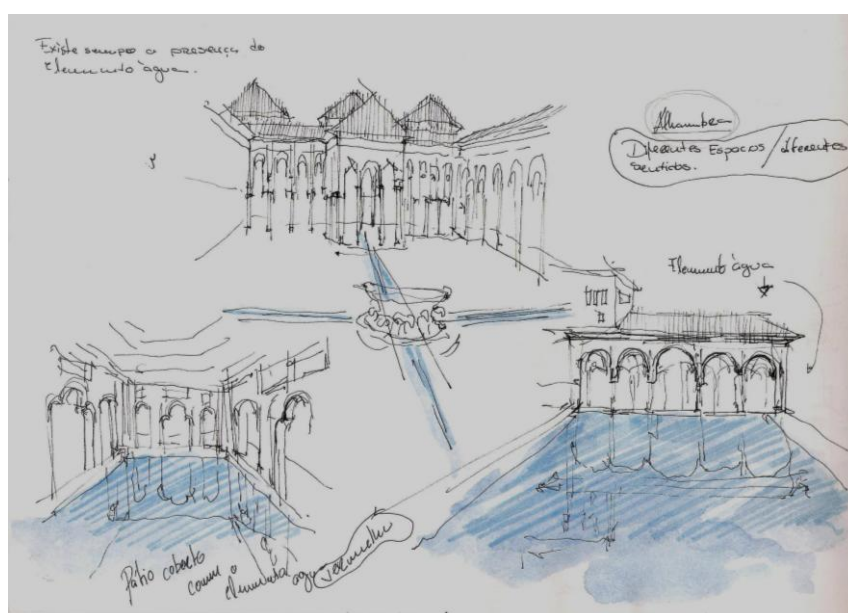 Existe sempre a presença do
Elemento água.
Alhambra
Diferentes Espaços / diferentes
sentidos.
Elemento água
Pátio coberto
com o
elemento água